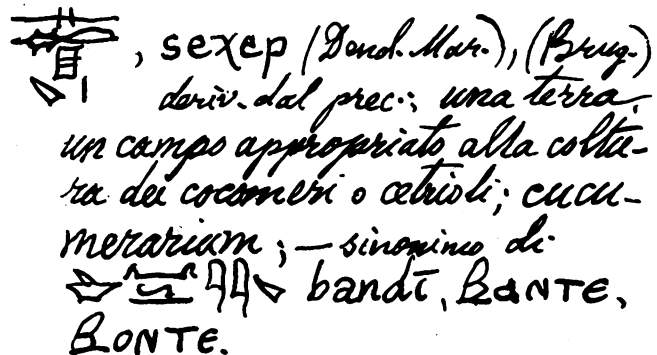 , sexep (Dend. Mar.), (Brug.)
deriv. dal prec.; una terra,
un campo appropriato alla coltu-
ra dei cocomeri o cetrioli; cucu-
merarium; — sinonimo di
bandī, BANTE,
BONTE.